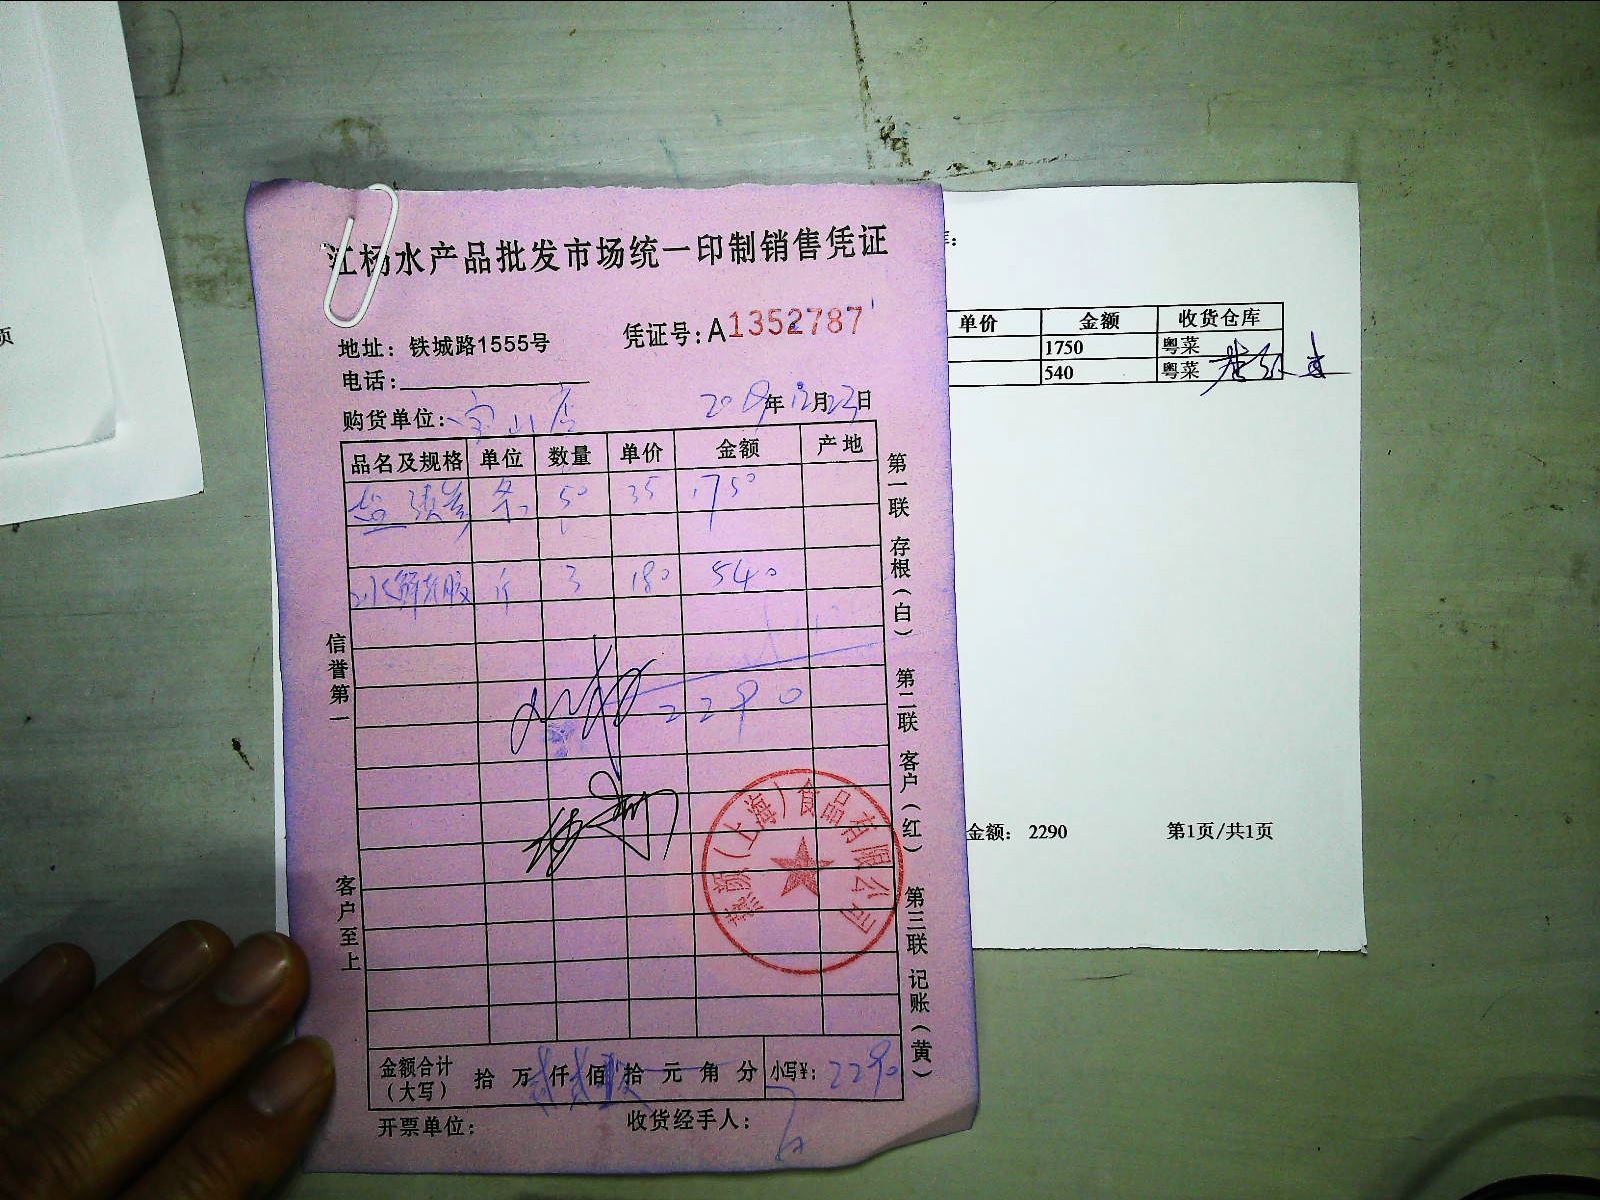 江杨水产品批发市场统一印制销售凭证
地址：铁城路1555号 凭证号：A1352787
电话：
购货单位： 宝山店 2019年12月23日
品名及规格 单位 数量 单价 金额 产地
条 50 35 1750
斤 3 180 540
2290
金额合计（大写） 拾 万 贰 仟 贰 佰 拾 元 角 分 小写¥：2290
开票单位： 收货经手人：
信誉第一
客户至上
第一联 存根（白）
第二联 客户（红）
第三联 记账（黄）
（上海）食品有限公司
单价 金额 收货仓库
1750 粤菜
540 粤菜
金额： 2290 第1页/共1页
页